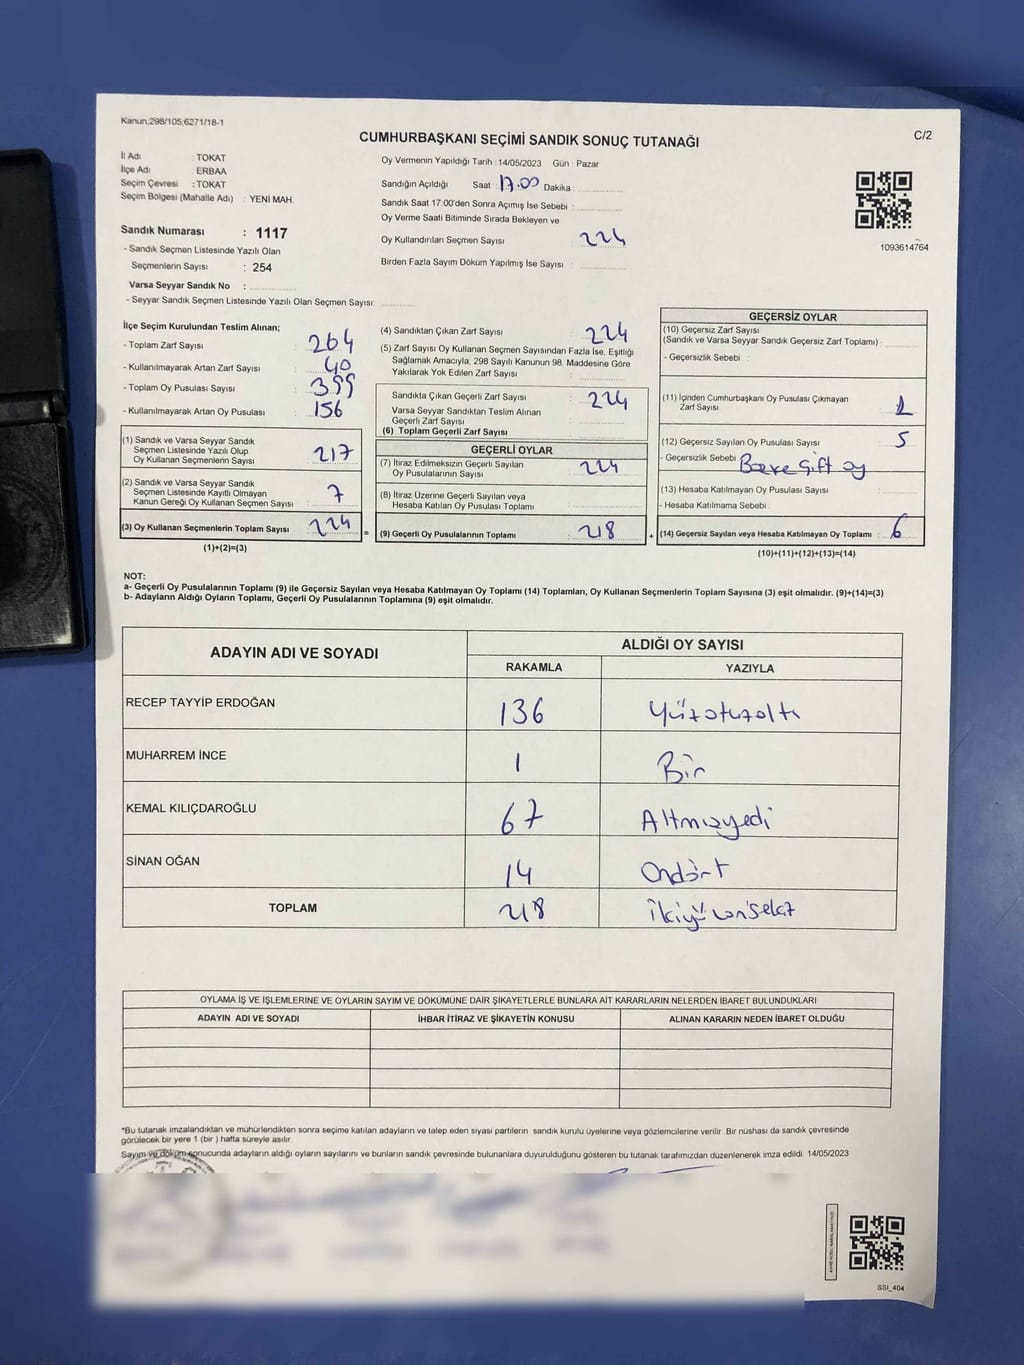 Kanun,298/105,6271/18-1
C/2
CUMHURBAŞKANI SEÇİMİ SANDIK SONUÇ TUTANAĞI
İl Adı : TOKAT
İlçe Adı : ERBAA
Seçim Çevresi : TOKAT
Seçim Bölgesi (Mahalle Adı) : YENİ MAH.
Sandık Numarası : 1117
- Sandık Seçmen Listesinde Yazılı Olan
Seçmenlerin Sayısı : 254
Varsa Seyyar Sandık No :
- Seyyar Sandık Seçmen Listesinde Yazılı Olan Seçmen Sayısı:
Oy Vermenin Yapıldığı Tarih : 14/05/2023 Gün : Pazar
Sandığın Açıldığı Saat : 17.00 Dakika :
Sandık Saat 17:00'den Sonra Açımış İse Sebebi :
Oy Verme Saati Bitiminde Sırada Bekleyen ve
Oy Kullandırılan Seçmen Sayısı : 224
Birden Fazla Sayım Döküm Yapılmış İse Sayısı :
1093614764
İlçe Seçim Kurulundan Teslim Alınan;
- Toplam Zarf Sayısı : 264
- Kullanılmayarak Artan Zarf Sayısı : 40
- Toplam Oy Pusulası Sayısı : 399
- Kullanılmayarak Artan Oy Pusulası : 156
(1) Sandık ve Varsa Seyyar Sandık
Seçmen Listesinde Yazılı Olup
Oy Kullanan Seçmenlerin Sayısı : 217
(2) Sandık ve Varsa Seyyar Sandık
Seçmen Listesinde Kayıtlı Olmayan
Kanun Gereği Oy Kullanan Seçmen Sayısı : 7
(3) Oy Kullanan Seçmenlerin Toplam Sayısı : 224 =
(1)+(2)=(3)
(4) Sandıktan Çıkan Zarf Sayısı : 224
(5) Zarf Sayısı Oy Kullanan Seçmen Sayısından Fazla İse, Eşitliği
Sağlamak Amacıyla, 298 Sayılı Kanunun 98. Maddesine Göre
Yakılarak Yok Edilen Zarf Sayısı :
Sandıkta Çıkan Geçerli Zarf Sayısı : 224
Varsa Seyyar Sandıktan Teslim Alınan
Geçerli Zarf Sayısı :
(6) Toplam Geçerli Zarf Sayısı :
GEÇERLİ OYLAR
(7) İtiraz Edilmeksizin Geçerli Sayılan
Oy Pusulalarının Sayısı : 224
(8) İtiraz Üzerine Geçerli Sayılan veya
Hesaba Katılan Oy Pusulası Toplamı :
(9) Geçerli Oy Pusulalarının Toplamı : 218 +
GEÇERSİZ OYLAR
(10) Geçersiz Zarf Sayısı
(Sandık ve Varsa Seyyar Sandık Geçersiz Zarf Toplamı) :
- Geçersizlik Sebebi :
(11) İçinden Cumhurbaşkanı Oy Pusulası Çıkmayan
Zarf Sayısı : 1
(12) Geçersiz Sayılan Oy Pusulası Sayısı : 5
- Geçersizlik Sebebi : çift oy
(13) Hesaba Katılmayan Oy Pusulası Sayısı :
- Hesaba Katılmama Sebebi :
(14) Geçersiz Sayılan veya Hesaba Katılmayan Oy Toplamı : 6
(10)+(11)+(12)+(13)=(14)
NOT:
a- Geçerli Oy Pusulalarının Toplamı (9) ile Geçersiz Sayılan veya Hesaba Katılmayan Oy Toplamı (14) Toplamları, Oy Kullanan Seçmenlerin Toplam Sayısına (3) eşit olmalıdır. (9)+(14)=(3)
b- Adayların Aldığı Oyların Toplamı, Geçerli Oy Pusulalarının Toplamına (9) eşit olmalıdır.
ADAYIN ADI VE SOYADI
ALDIĞI OY SAYISI
RAKAMLA YAZIYLA
RECEP TAYYİP ERDOĞAN 136 Yüzotuzaltı
MUHARREM İNCE 1 Bir
KEMAL KILIÇDAROĞLU 67 Altmışyedi
SİNAN OĞAN 14 Ondört
TOPLAM 218 İkiyüzonsekiz
OYLAMA İŞ VE İŞLEMLERİNE VE OYLARIN SAYIM VE DÖKÜMÜNE DAİR ŞİKAYETLERLE BUNLARA AİT KARARLARIN NELERDEN İBARET BULUNDUKLARI
ADAYIN ADI VE SOYADI İHBAR İTİRAZ VE ŞİKAYETİN KONUSU ALINAN KARARIN NEDEN İBARET OLDUĞU
*Bu tutanak imzalandıktan ve mühürlendikten sonra seçime katılan adayların ve talep eden siyasi partilerin sandık kurulu üyelerine veya gözlemcilerine verilir. Bir nüshası da sandık çevresinde
görülecek bir yere 1 (bir) hafta süreyle asılır.
Sayım ve döküm sonucunda adayların aldığı oyların sayılarını ve bunların sandık çevresinde bulunanlara duyurulduğunu gösteren bu tutanak tarafımızdan düzenlenerek imza edildi. 14/05/2023
SSI_404